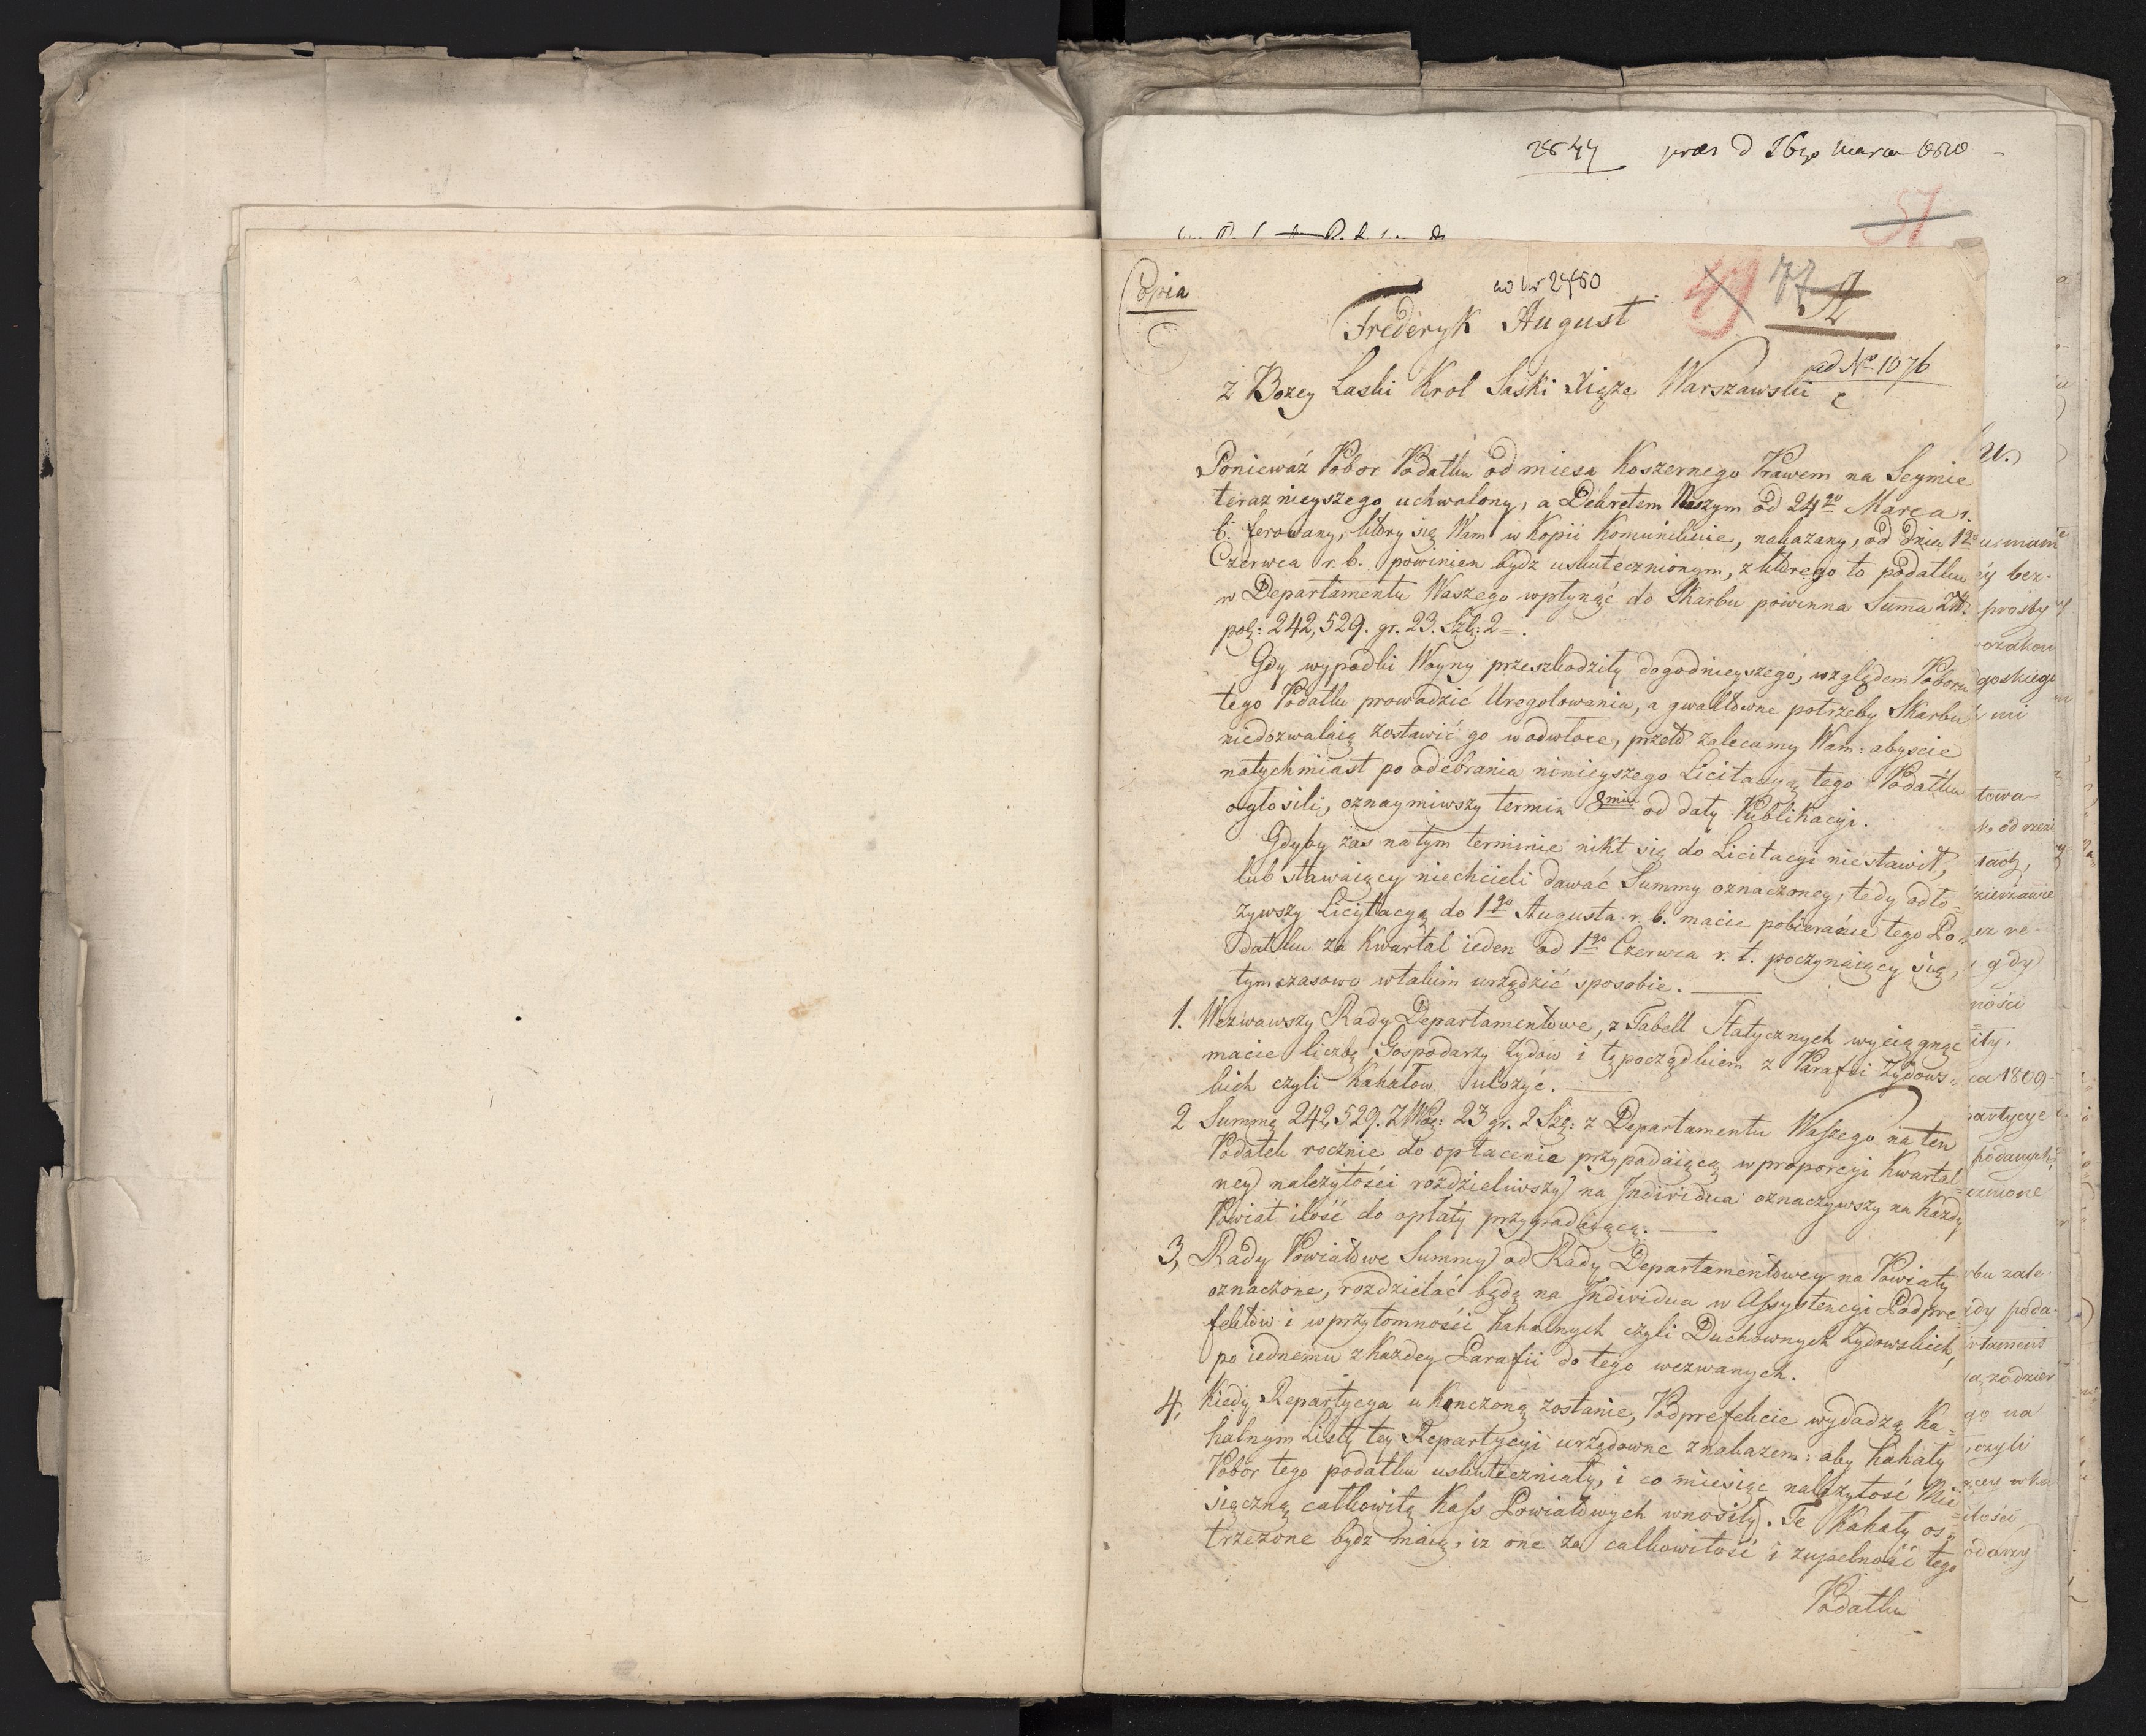 2844 praes d 26go marca 1810
51
Copia
ad Nr 2480
49 77 52
Frederyk August
ad No 1076
z Bozey Laski Krol Saski Xiąże Warszawski &
Poniewáż Pobor Podatku od miesa Koszernego Prawem na Seymie
teraznieyszego uchwalony, a Dekretem Naszym od 24go Marca r.
b. ferowany, ktory się Wam w Kopii Komunikuie, nakazany, od dnia 1go
Czerwca r. b. powinien bydz uskutecznionym, z ktorego to podatku
w Departamentu Waszego wpłynąć do Skarbu powinna Suma Złł.
pol: 242,529. gr. 23. Szl: 2=.
Gdy wypadki Woyny przeszkodziły dogodnieyszego, względem Poboru
tego Podatku prowadzić Uregolowania, a gwałtowne potrzeby Skarbu
niedozwalaią zostawić go w odwłoce, przeto zalecamy Wam: abyscie
natychmiast po odebrania ninieyszego Licitacyą tego Podatku
ogłosili, oznaymiwszy termin 8miu od daty Publikacyi.
Gdyby zas na tym terminie nikt się do Licitacyi niestawił,
lub stawaiący niechcieli dawać Summy oznaczoney, tedy odło=
zywszy Licytacyą do 1go Augusta r. b. macie pobieranie tego Po=
datku za Kwartał ieden od 1go Czerwca r. t. poczynaiący się,
tymczasowo w takim urządzić sposobie.
1. Wezwawszy Rady Departamentowe, z Tabell Statycznych wyciągnąć
macie liczbę Gospodarzy Zydow i tę początkiem z Parafii Zydows=
kich czyli Kahałow ułozyć.
2 Summę 242,529. Złł Pol: 23 gr. 2 Szl: z Departamentu Waszego na ten
Podatek rocznie do opłacenia przypadaiącą w proporcyi Kwartal=
ney nalezytości rozdzieliwszy na Individua oznaczywszy na Kazdy
Powiat ilość do opłaty przypadaiącą.
3, Rady Powiatowe Summy od Rady Departamentowey na Powiaty
oznaczone, rozdzielać będą na Individua w Assystencyi Podpre=
fektow i w przytomności Kahalnych czyli Duchownych Zydowskich,
po iednemu z Kazdey Parafii do tego wezwanych.
4, Kiedy Repartycya ukonczoną zostanie, Podprefekcie wydadzą Ka=
halnym Listy tey Repartycyi urzędowne z nakazem: aby Kahały
Pobor tego podatku uskuteczniały, i co miesiąc nalezytość Mie=
sięczną całkowitą Kass Powiatowych wnosiły. Te Kahały os=
trzezone bydz maią, iz one za całkowitość i zupełność tego
Podatku